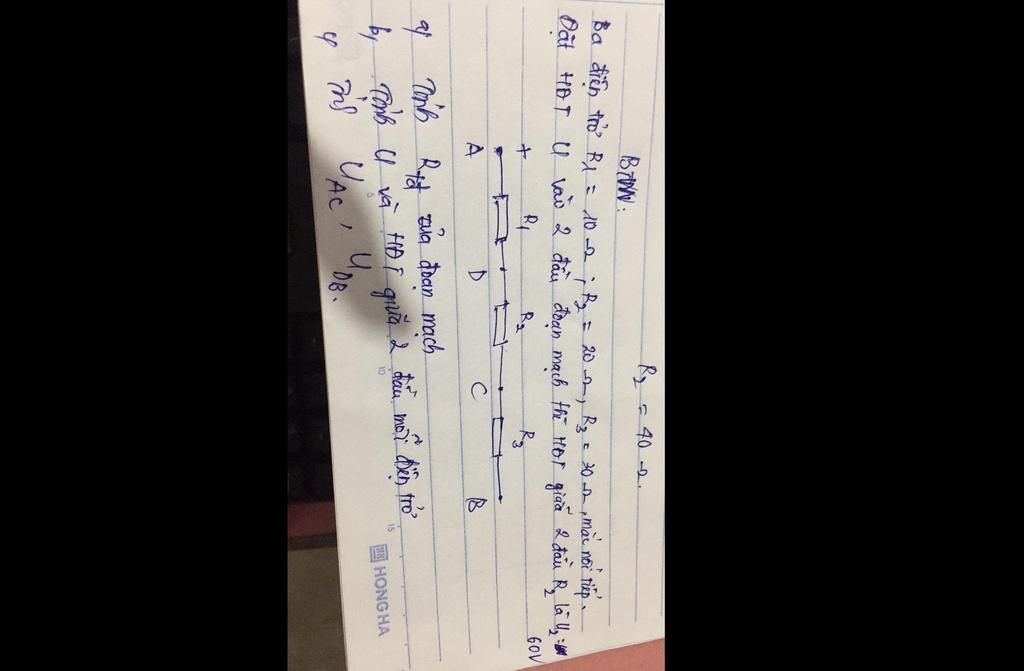 R2 = 40 Ω.
BTVN:
Ba điện trở R1 = 10 Ω ; R2 = 20 Ω, R3 = 30 Ω, mắc nối tiếp.
Đặt HĐT U vào 2 đầu đoạn mạch thì HĐT giữa 2 đầu R2 là U2 = 60V
+ R1 R2 R3
A D C B
a) Tính Rtđ của đoạn mạch
b, Tính U và HĐT giữa 2 đầu mỗi điện trở
c) Tính UAC, UDB.
5 10 15
HONG HA